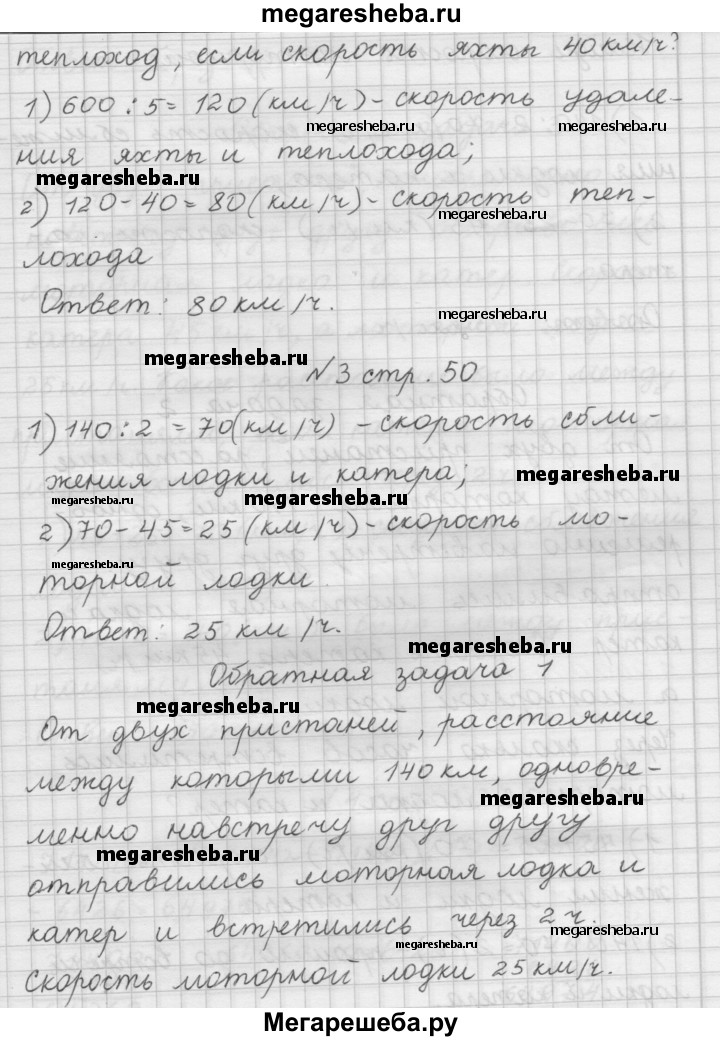 megaresheba.ru
теплоход, если скорость яхты 40 км/ч?
1) 600 : 5 = 120 (км/ч) - скорость удале-
megaresheba.ru megaresheba.ru
ния яхты и теплохода;
megaresheba.ru
2) 120 - 40 = 80 (км/ч) - скорость теп-
megaresheba.ru
лохода
Ответ: 80 км/ч.
megaresheba.ru
megaresheba.ru
№3 стр. 50
1) 140 : 2 = 70 (км/ч) - скорость сбли-
жения лодки и катера;
megaresheba.ru
megaresheba.ru megaresheba.ru
2) 70 - 45 = 25 (км/ч) - скорость мо-
megaresheba.ru
торной лодки.
Ответ: 25 км/ч.
megaresheba.ru
Обратная задача 1
megaresheba.ru
От двух пристаней, расстояние
между которыми 140 км, одновре-
megaresheba.ru
менно навстречу друг другу
megaresheba.ru
отправились моторная лодка и
катер и встретились через 2 ч.
megaresheba.ru megaresheba.ru
Скорость моторной лодки 25 км/ч.
Мегарешеба.ру